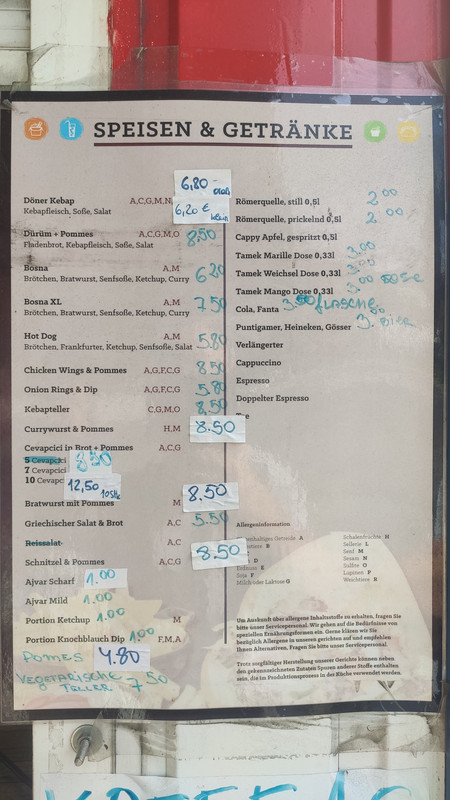 SPEISEN & GETRÄNKE
6,80 groß
Döner Kebap A,C,G,M,N
6,20 € klein
Kebapfleisch, Soße, Salat
Dürüm + Pommes A,C,G,M,O 8,50
Fladenbrot, Kebapfleisch, Soße, Salat
Bosna A,M 6,20
Brötchen, Bratwurst, Senfsoße, Ketchup, Curry
Bosna XL A,M 7,50
Brötchen, Bratwurst, Senfsoße, Ketchup, Curry
Hot Dog A,M 5.80
Brötchen, Frankfurter, Ketchup, Senfsoße, Salat
Chicken Wings & Pommes A,G,F,C,G 8,50
Onion Rings & Dip A,G,F,C,G 5.80
Kebapteller C,G,M,O 8,50
Currywurst & Pommes H,M 8.50
Cevapcici in Brot + Pommes A,C,G
5 Cevapcici 8,50
7 Cevapcici
10 Cevapc 12,50 10Stk
Bratwurst mit Pommes M 8.50
Griechischer Salat & Brot A,C 5.50
Reissalat A,C
Schnitzel & Pommes A,C,G 8.50
Ajvar Scharf 1.00
Ajvar Mild 1.00
Portion Ketchup 1.00
Portion Knochblauch Dip 1,00 F,M,A
POMES 4.80
VEGETARISCHE
TELLER 7,50
Römerquelle, still 0,5l 2,00
Römerquelle, prickelnd 0,5l 2,00
Cappy Apfel, gespritzt 0,5l
Tamek Marille Dose 0,33l 3,00
Tamek Weichsel Dose 0,33l
Tamek Mango Dose 0,33l DOSE
Cola, Fanta 3.50 FLASCHE
Puntigamer, Heineken, Gösser 3. BIER
Verlängerter
Cappuccino
Espresso
Doppelter Espresso
Allergeninformation
Getreide A
D
Erdnuss E
Soja F
Milch oder Laktose G
Schalenfrüchte H
Sellerie L
Senf M
Sesam N
Sulfite O
Lupinen P
Weichtiere R
Um Auskunft über allergene Inhaltsstoffe zu erhalten, fragen Sie
bitte unser Servicepersonal. Wir gehen auf die Bedürfnisse von
speziellen Ernährungsformen ein. Gerne klären wir Sie
bezüglich Allergene in unseren gerichten auf und empfehlen
Ihnen Alternativen, Fragen Sie bitte unser Servicepersonal.
Trotz sorgfältiger Herstellung unserer Gerichte können neben
den gekennzeichneten Zutaten Spuren anderer Stoffe enthalten
sein, die im Produktionsprozess in der Küche verwendet werden.